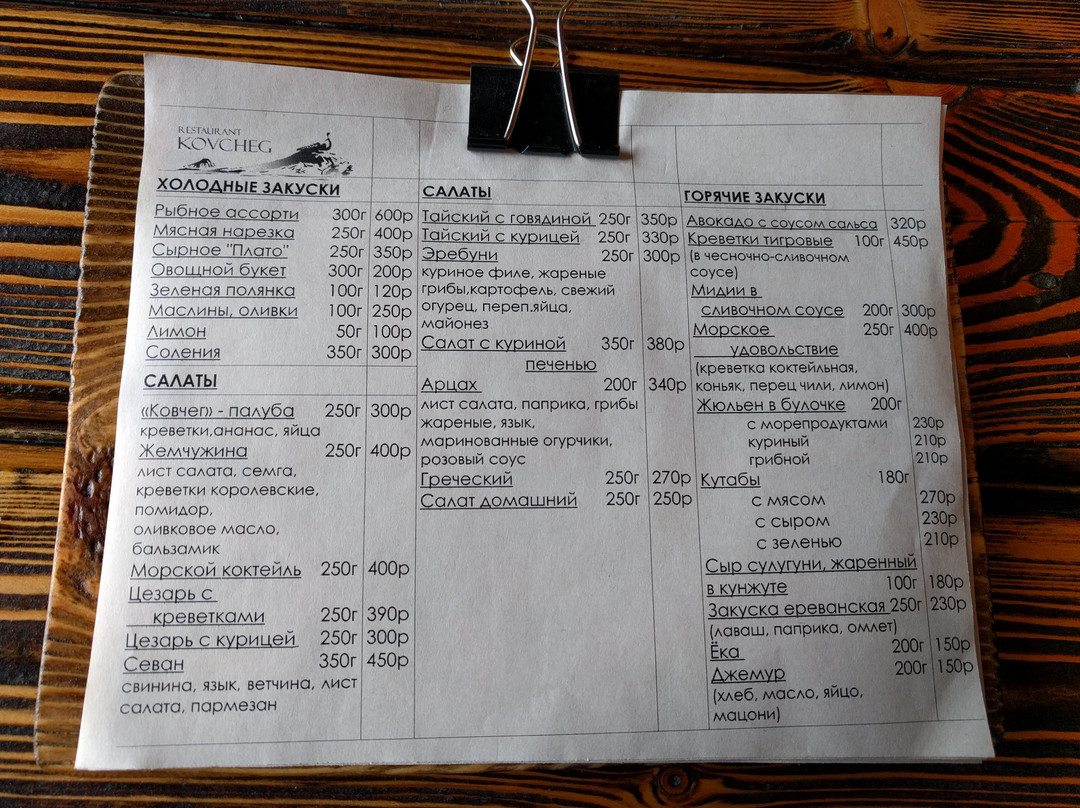 RESTAURANT
KOVCHEG
ХОЛОДНЫЕ ЗАКУСКИ
Рыбное ассорти 300г 600р
Мясная нарезка 250г 400р
Сырное "Плато" 250г 350р
Овощной букет 300г 200р
Зеленая полянка 100г 120р
Маслины, оливки 100г 250р
Лимон 50г 100р
Соления 350г 300р
САЛАТЫ
«Ковчег» - палуба 250г 300р
креветки,ананас, яйца
Жемчужина 250г 400р
лист салата, семга,
креветки королевские,
помидор,
оливковое масло,
бальзамик
Морской коктейль 250г 400р
Цезарь с
креветками 250г 390р
Цезарь с курицей 250г 300р
Севан 350г 450р
свинина, язык, ветчина, лист
салата, пармезан
САЛАТЫ
Тайский с говядиной 250г 350р
Тайский с курицей 250г 330р
Эребуни 250г 300р
куриное филе, жареные
грибы,картофель, свежий
огурец, переп.яйца,
майонез
Салат с куриной 350г 380р
печенью
Арцах 200г 340р
лист салата, паприка, грибы
жареные, язык,
маринованные огурчики,
розовый соус
Греческий 250г 270р
Салат домашний 250г 250р
ГОРЯЧИЕ ЗАКУСКИ
Авокадо с соусом сальса 320р
Креветки тигровые 100г 450р
(в чесночно-сливочном
соусе)
Мидии в
сливочном соусе 200г 300р
Морское 250г 400р
удовольствие
(креветка коктейльная,
коньяк, перец чили, лимон)
Жюльен в булочке 200г
с морепродуктами 230р
куриный 210р
грибной 210р
Кутабы 180г
с мясом 270р
с сыром 230р
с зеленью 210р
Сыр сулугуни, жаренный
в кунжуте 100г 180р
Закуска ереванская 250г 230р
(лаваш, паприка, омлет)
Ёка 200г 150р
Джемур 200г 150р
(хлеб, масло, яйцо,
мацони)